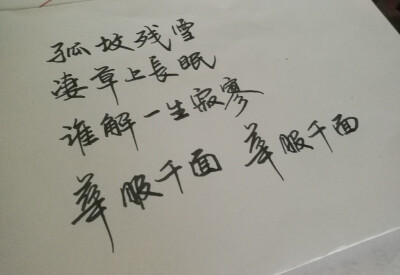 孤坟残雪
凄草上長眠
谁解一生寂寥
華服千面 華服千面